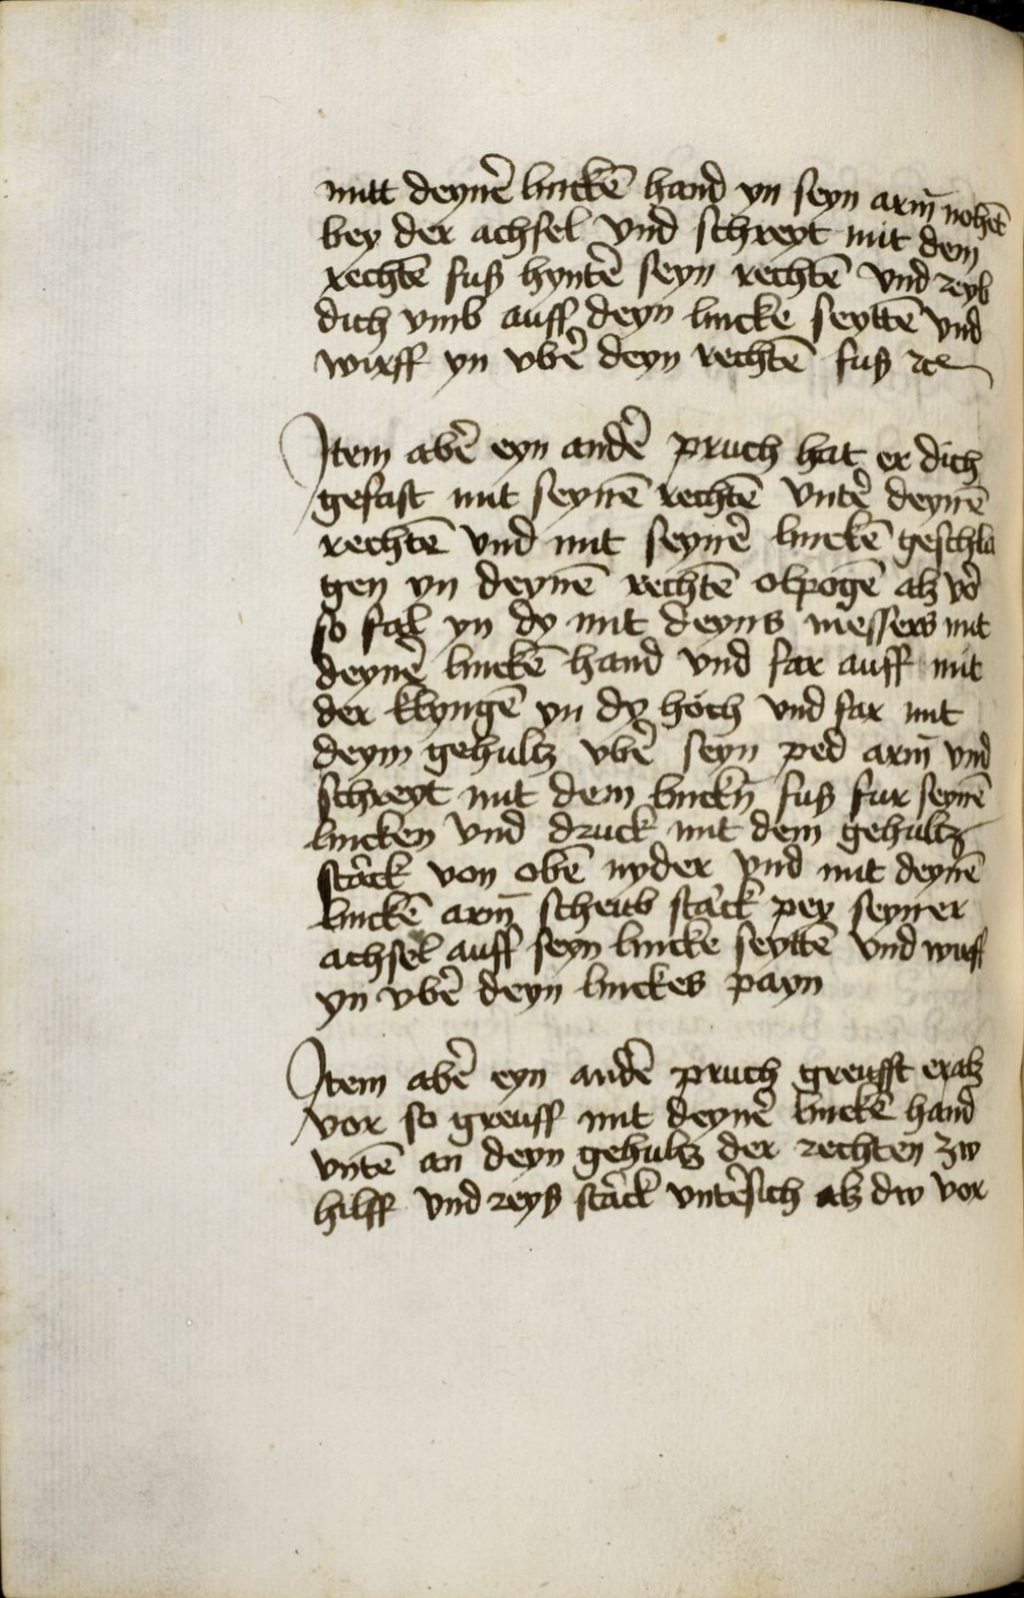 mitt deynē linckē hand yn seyn arm̄ nohēt
bey der achsel vnd schreyt mit dem
rechtē fuß hyntē seyn rechtē vnd reyb
dich vmb auff deyn lincke seyttē vnd
wirff yn vbē deyn rechtē fuß ꝛc
Item abē eyn andē pruch hat er dich
gefast mit seynē rechtē vntē deynē
rechtē vnd mit seynē linckē geschla
gen yn deynē rechtē olpogē alz vō
so fal yn dy mit deyns messers mit
deynē linckē hand vnd far auff mit
der klyngē yn dy höch vnd far mit
deym gehultz vbē seyn ped arm̄ vnd
schreyt mit dem linckn̄ fuß fur seynē
lincken vnd druck mit dem gehultz
stāck von obē nyder vnd mit deynē
linckē arm̄ scheub stāck pey seyner
achsel auff seyn lincke seyttē vnd wuff
yn vbē deyn linckes payn
Item abē eyn andē pruch greufft er alz
vor so greuff mit deynē linckē hand
vntē an deyn gehultz der rechten zw
hilff vnd reyß stāck vntēsich alz dw vor